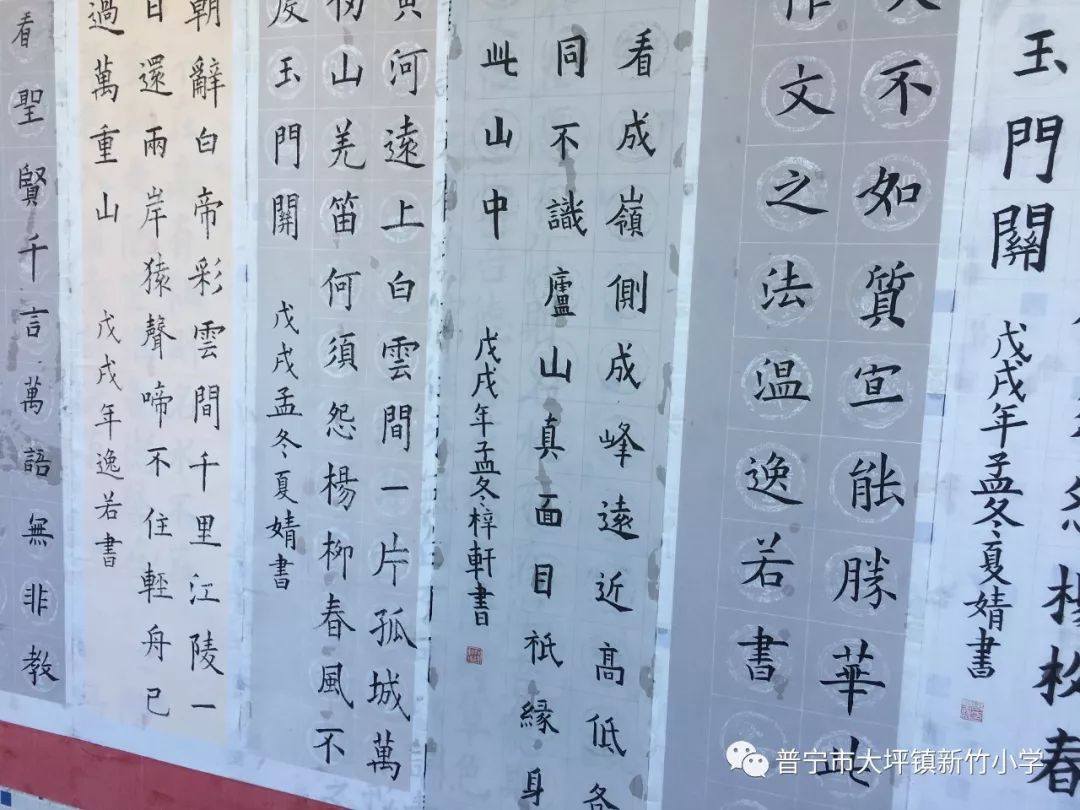 怨楊柳春
玉門關 戊戌年孟冬夏婧書
不如質宣能勝華此
作文之法温逸若書
看成嶺側成峰遠近高低各
同不識廬山真面目祇緣身
此山中 戊戌年孟冬梓軒書
黃河遠上白雲間一片孤城萬
仞山羌笛何須怨楊柳春風不
度玉門關 戊戌孟冬夏婧書
朝辭白帝彩雲間千里江陵一
日還兩岸猿聲啼不住輕舟已
過萬重山 戊戌年逸若書
看聖賢千言萬語無非教
普宁市大坪镇新竹小学